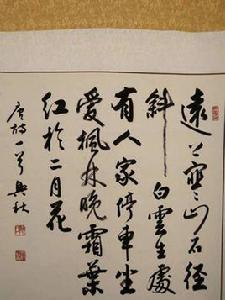 遠上寒山石徑
斜白雲生處
有人家停車坐
愛楓林晚霜葉
紅於二月花
唐詩一首